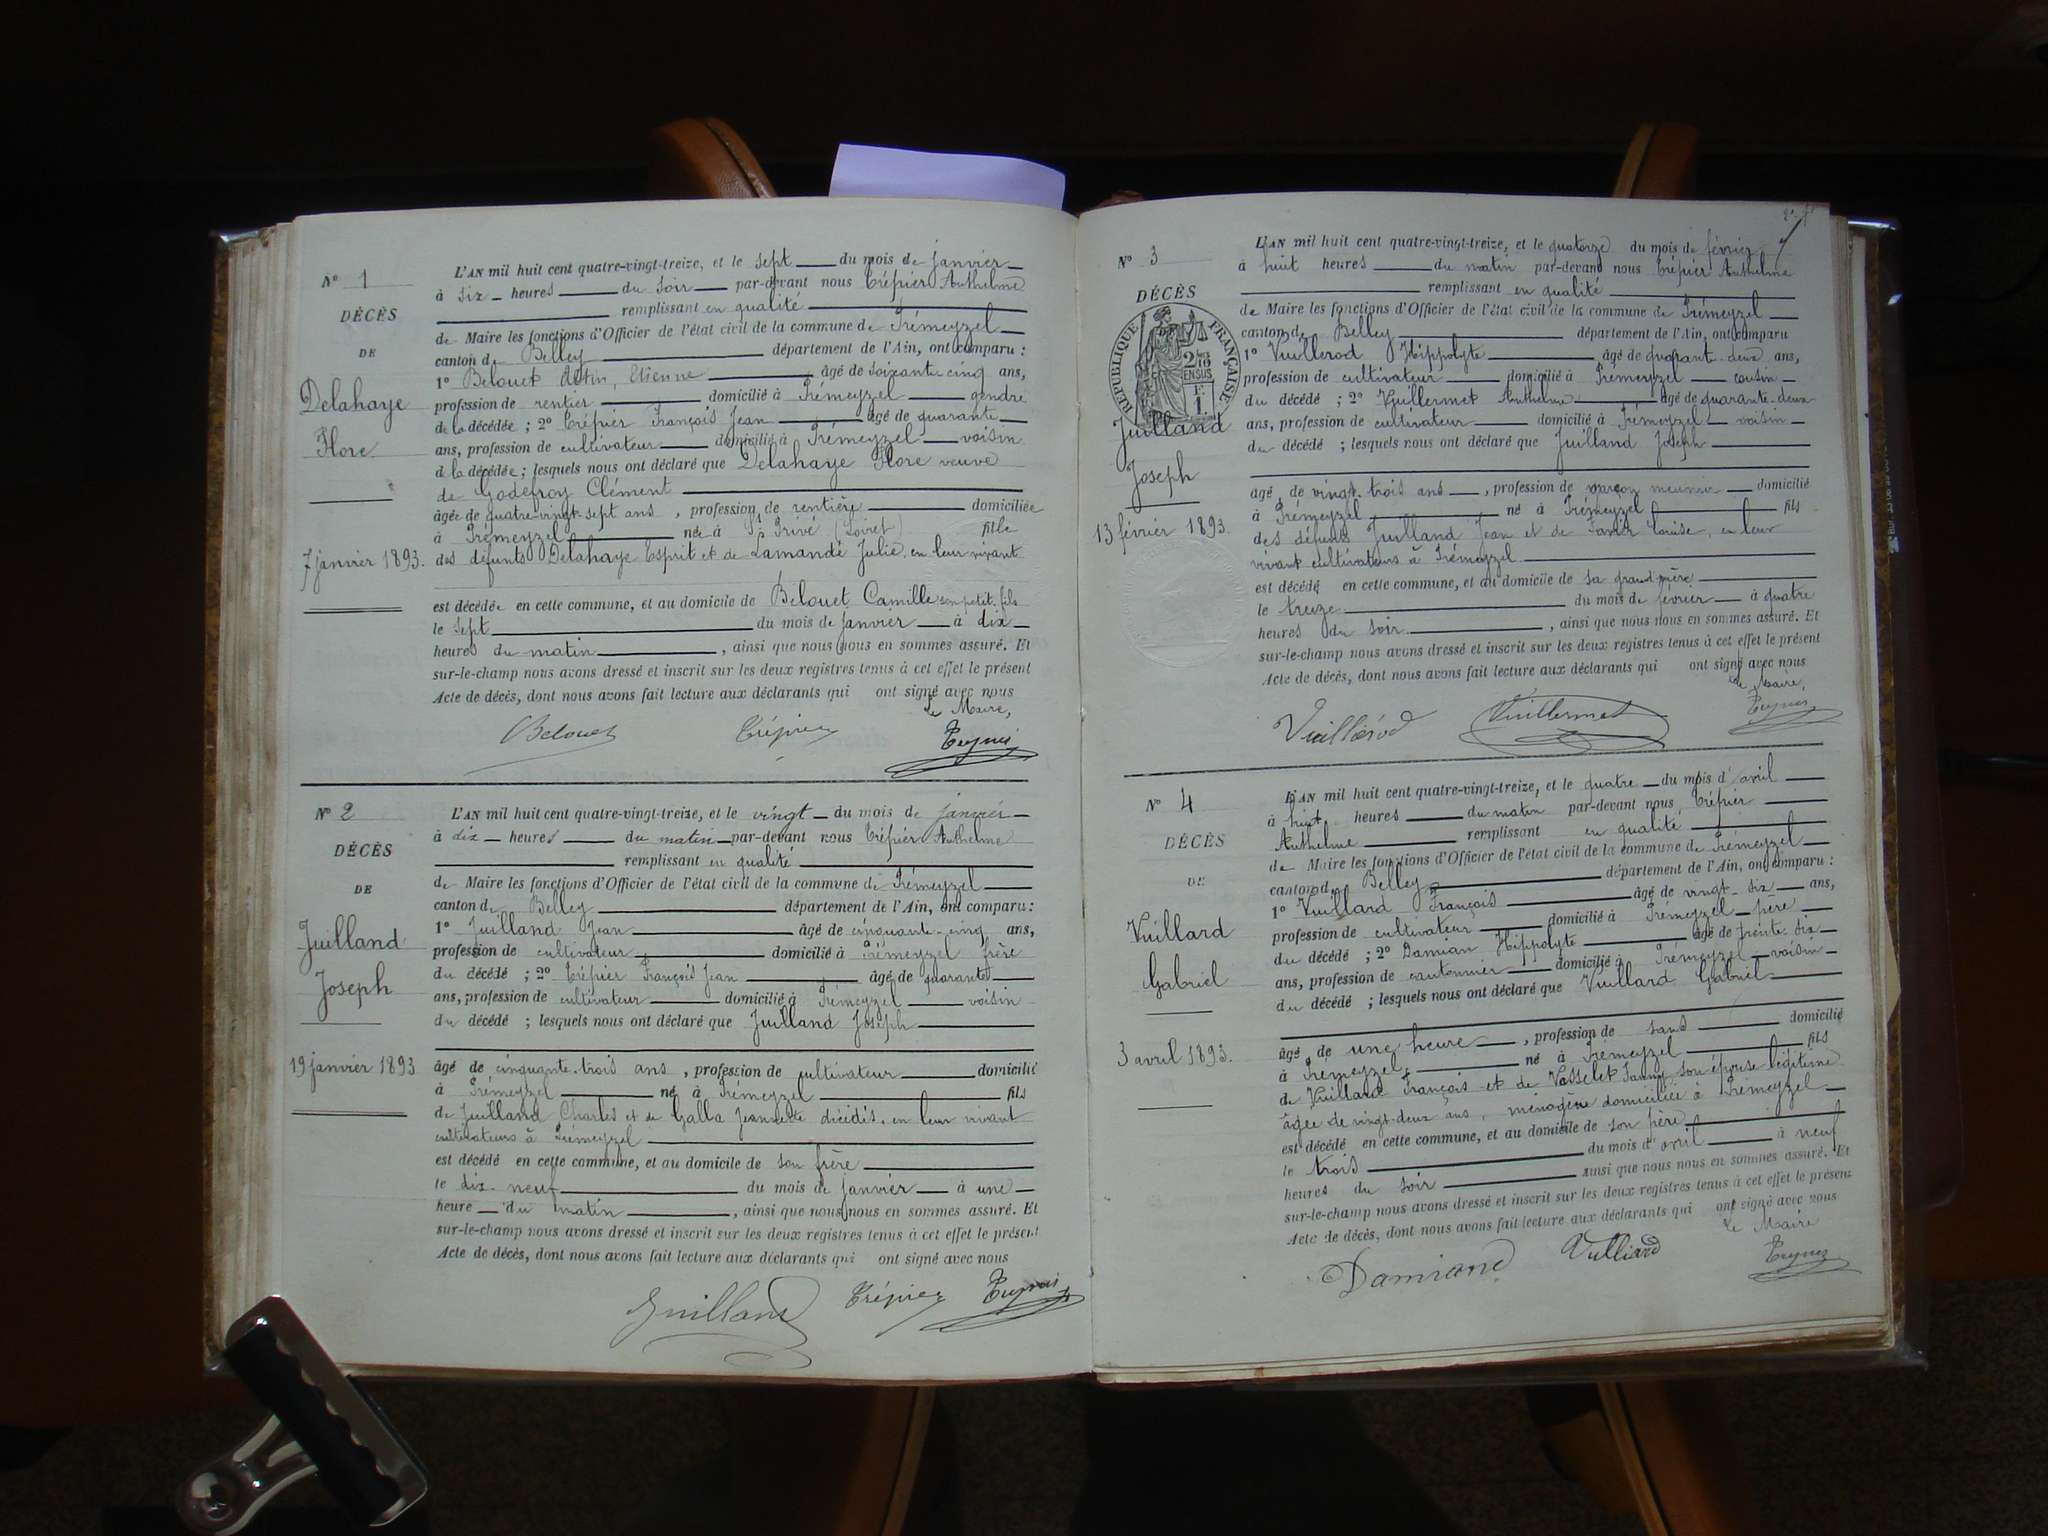 N° 1
DÉCÈS
DE
Delahaye
Flore
7 janvier 1893.
L'AN mil huit cent quatre-vingt-treize, et le sept du mois de janvier
à six heures du soir par-devant nous Trépier Anthelme
remplissant en qualité
de Maire les fonctions d'Officier de l'état civil de la commune de Prémeyzel
canton de Belley département de l'Ain, ont comparu :
1° Belouet Etienne âgé de soixante cinq ans,
profession de rentier domicilié à Prémeyzel gendre
de la décédée ; 2° Trépier François Jean âgé de quarante
ans, profession de cultivateur domicilié à Prémeyzel voisin
de la décédée ; lesquels nous ont déclaré que Delahaye Flore veuve
de Godefroy Clément
âgée de quatre-vingt-sept ans, profession de rentière domiciliée
à Prémeyzel née à St Privé (Loiret) fille
des défunts Delahaye Esprit et de Lamandé Julie, en leur vivant
est décédée en cette commune, et au domicile de Belouet Camille son petit-fils
le sept du mois de janvier à dix
heures du matin, ainsi que nous nous en sommes assuré. Et
sur-le-champ nous avons dressé et inscrit sur les deux registres tenus à cet effet le présent
Acte de décès, dont nous avons fait lecture aux déclarants qui ont signé avec nous
Le Maire,
Belouet Trépier Trépier
N° 2
DÉCÈS
DE
Juilland
Joseph
19 janvier 1893
L'AN mil huit cent quatre-vingt-treize, et le vingt du mois de janvier
à dix heures du matin par-devant nous Trépier Anthelme
remplissant en qualité
de Maire les fonctions d'Officier de l'état civil de la commune de Prémeyzel
canton de Belley département de l'Ain, ont comparu :
1° Juilland Jean âgé de cinquante-cinq ans,
profession de cultivateur domicilié à Prémeyzel frère
du décédé ; 2° Trépier François Jean âgé de quarante
ans, profession de cultivateur domicilié à Prémeyzel voisin
du décédé ; lesquels nous ont déclaré que Juilland Joseph
âgé de cinquante-trois ans, profession de cultivateur domicilié
à Prémeyzel né à Prémeyzel fils
de Juilland Charles et de Galla Jeannette décédés, en leur vivant
cultivateurs à Prémeyzel
est décédé en cette commune, et au domicile de son frère
le dix-neuf du mois de janvier à une
heure du matin, ainsi que nous nous en sommes assuré. Et
sur-le-champ nous avons dressé et inscrit sur les deux registres tenus à cet effet le présent
Acte de décès, dont nous avons fait lecture aux déclarants qui ont signé avec nous
Juilland Trépier Trépier
N° 3
DÉCÈS
RÉPUBLIQUE FRANÇAISE
Juilland
Joseph
13 février 1893.
L'AN mil huit cent quatre-vingt-treize, et le quatorze du mois de février
à huit heures du matin par-devant nous Trépier Anthelme
remplissant en qualité
de Maire les fonctions d'Officier de l'état civil de la commune de Prémeyzel
canton de Belley département de l'Ain, ont comparu
1° Vuillerod Hippolyte âgé de quarante-deux ans,
profession de cultivateur domicilié à Prémeyzel cousin
du décédé ; 2° Vuillermet Anthelme âgé de quarante-deux
ans, profession de cultivateur domicilié à Prémeyzel voisin
du décédé ; lesquels nous ont déclaré que Juilland Joseph
âgé de vingt-trois ans, profession de garçon meunier domicilié
à Prémeyzel né à Prémeyzel fils
des défunts Juilland Jean et de Louise, en leur
vivant cultivateurs à Prémeyzel
est décédé en cette commune, et au domicile de sa grand'mère
le treize du mois de février à quatre
heures du soir, ainsi que nous nous en sommes assuré. Et
sur-le-champ nous avons dressé et inscrit sur les deux registres tenus à cet effet le présent
Acte de décès, dont nous avons fait lecture aux déclarants qui ont signé avec nous
Le Maire,
Vuillérod Vuillermet Trépier
N° 4
DÉCÈS
DE
Vuillard
Gabriel
3 avril 1893.
L'AN mil huit cent quatre-vingt-treize, et le quatre du mois d'avril
à huit heures du matin par-devant nous Trépier
Anthelme remplissant en qualité
de Maire les fonctions d'Officier de l'état civil de la commune de Prémeyzel
canton de Belley département de l'Ain, ont comparu :
1° Vuillard François âgé de vingt-six ans,
profession de cultivateur domicilié à Prémeyzel père
du décédé ; 2° Damian Hippolyte âgé de trente-six
ans, profession de cantonnier domicilié à Prémeyzel voisin
du décédé ; lesquels nous ont déclaré que Vuillard Gabriel
âgé de une heure, profession de sans domicilié
à Prémeyzel né à Prémeyzel fils
de Vuillard François et de Vasselet Fanny son épouse légitime
âgée de vingt-deux ans, ménagère domiciliée à Prémeyzel
est décédé en cette commune, et au domicile de son père
le trois du mois d'avril à neuf
heures du soir ainsi que nous nous en sommes assuré. Et
sur-le-champ nous avons dressé et inscrit sur les deux registres tenus à cet effet le présent
Acte de décès, dont nous avons fait lecture aux déclarants qui ont signé avec nous
Le Maire
Damiand Vulliard Trépier